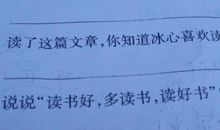 读了这篇文章,你知道冰心喜欢读
说说“读书好,多读书,读好书”